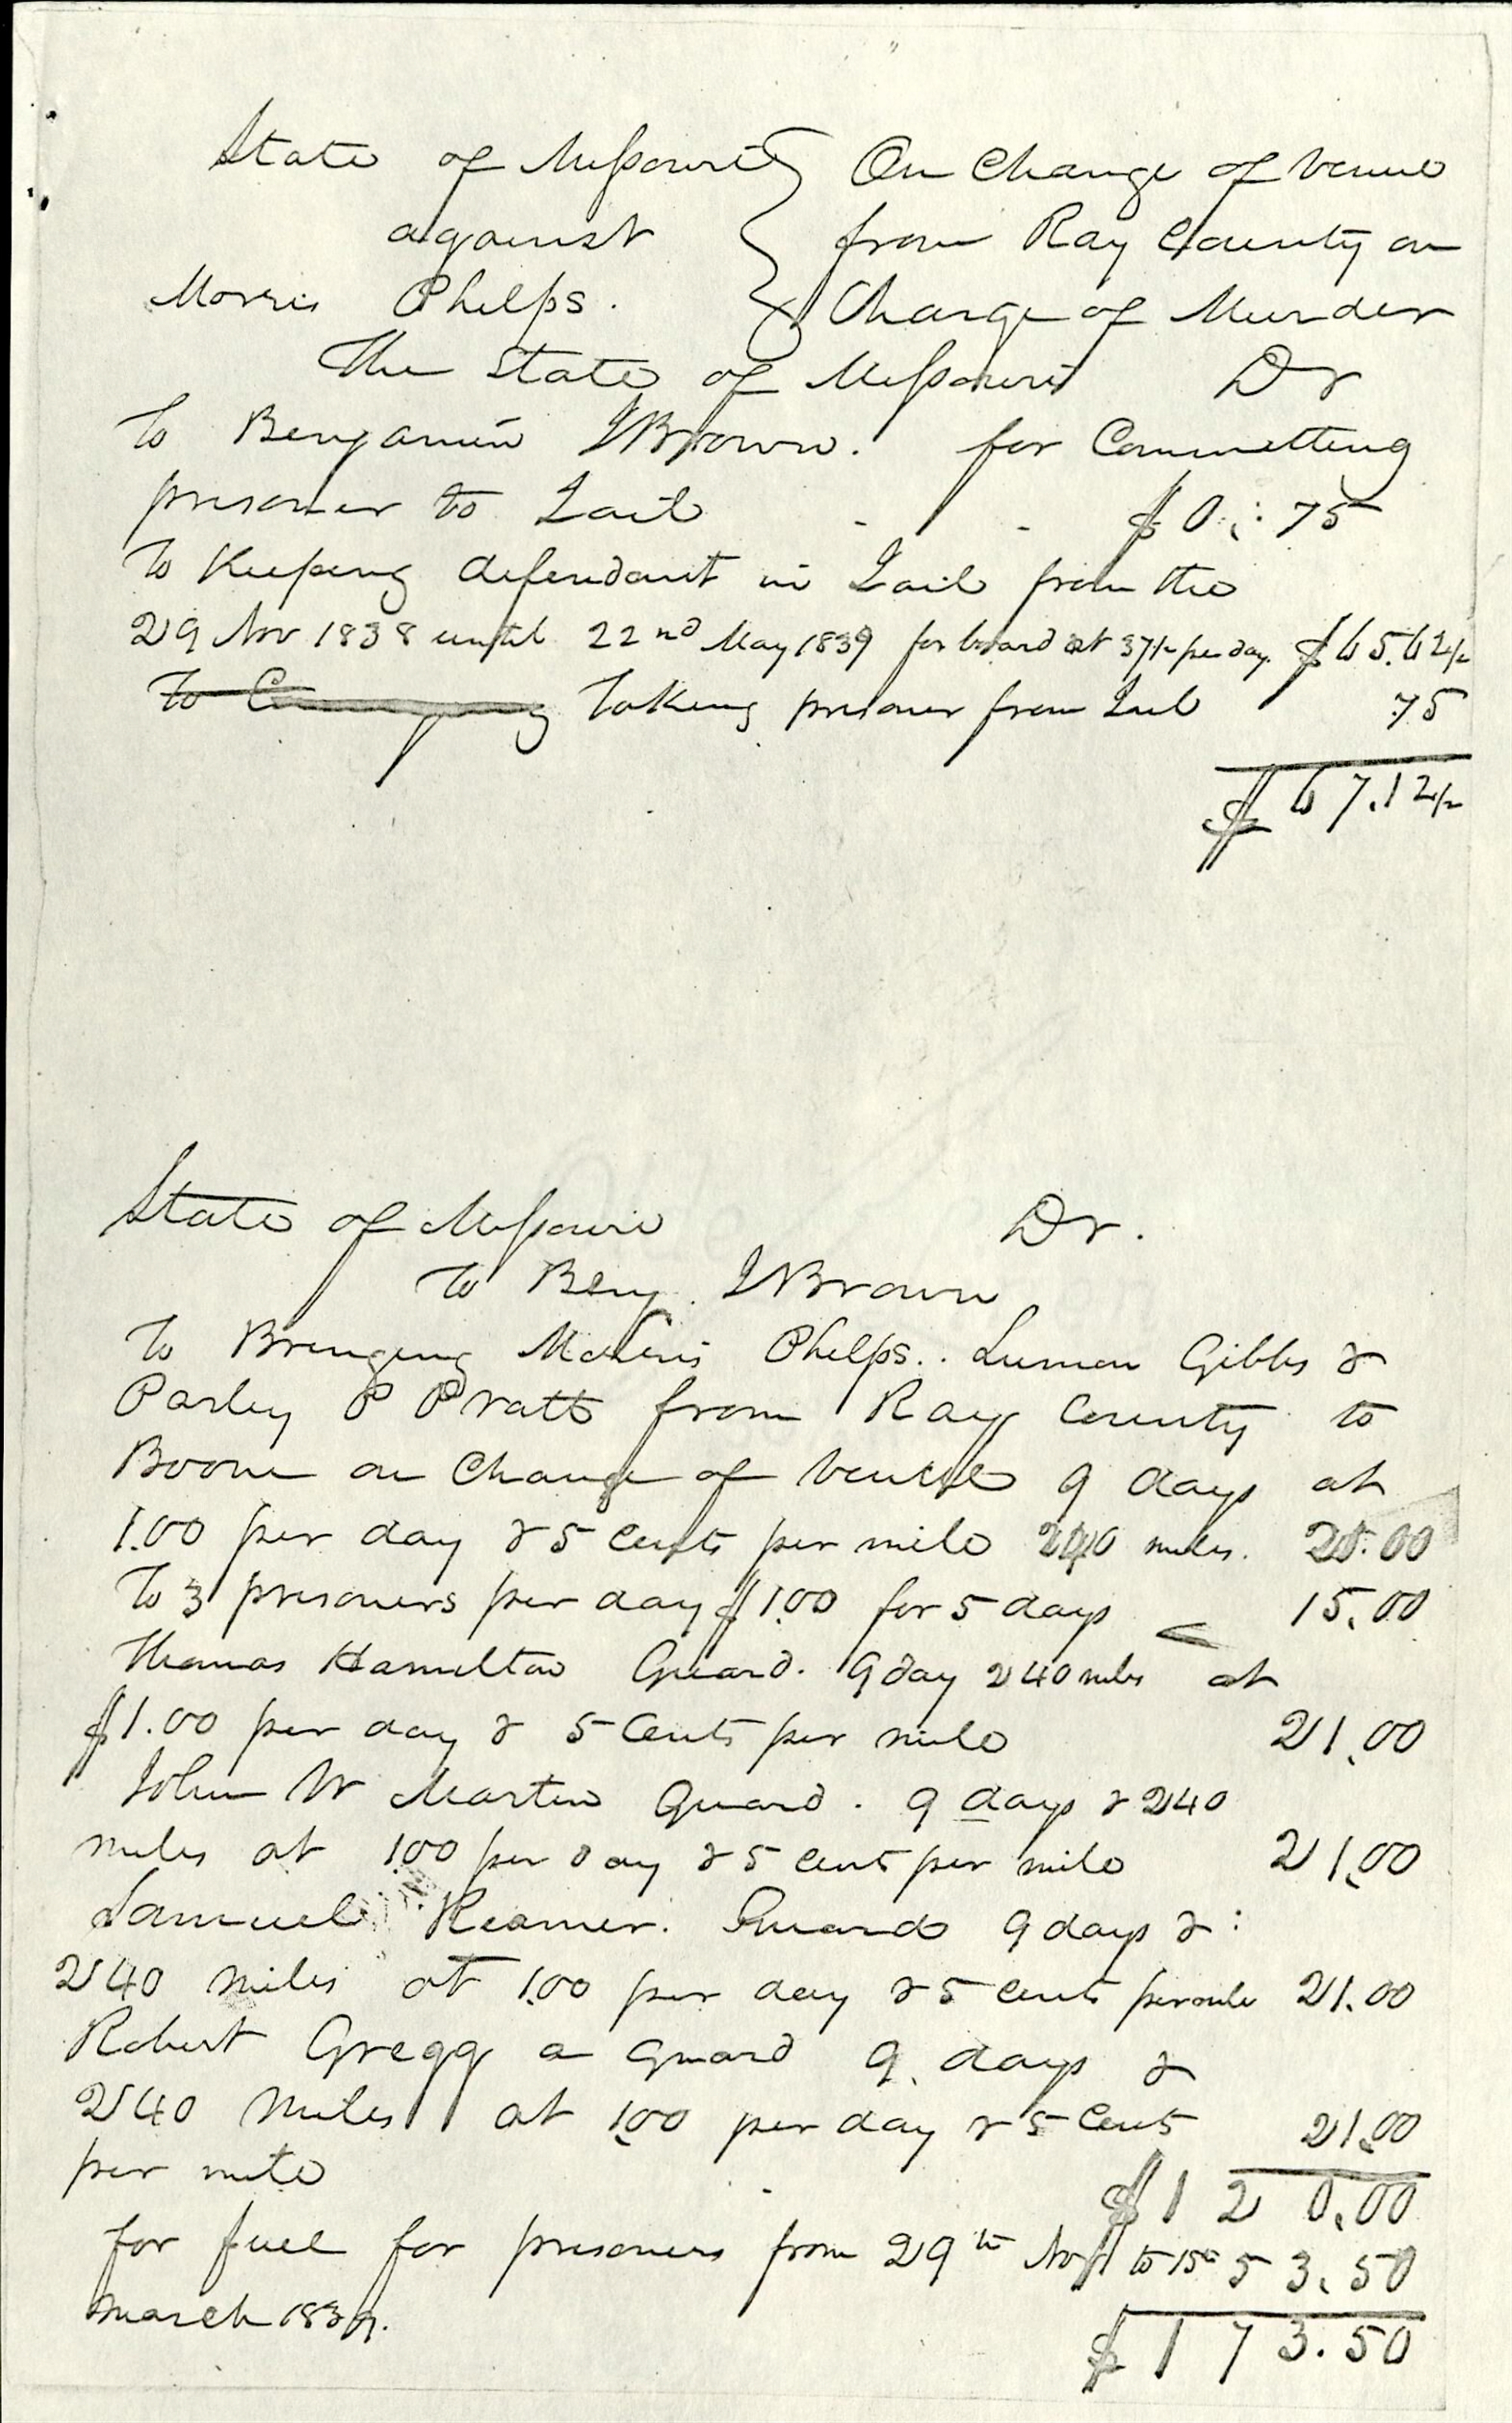 State of Missouri } On Change of venue
against } from Ray County on
Morris Phelps. } Charge of Murder
The State of Missouri Dr
To Benjamin J Brown. for Committing
prisoner to Jail - - $0..75
To Keeping defendant in Jail from the
29 Nov 1838 until 22nd May 1839 for board at 37½ per day. $65.62½
To taking prisoner from Jail 75
$67.12½
State of Missouri Dr.
To Benj. J Brown
To Bringing Morris Phelps.. Luman Gibbs &
Parley P Pratt from Ray County to
Boone on Change of venue 9 days at
1.00 per day & 5 Cents per mile 240 miles.
To 3 prisoners per day $1.00 for 5 days 15.00
Thomas Hamilton Guard. 9 day 240 miles at
$1.00 per day & 5 Cents per mile 21.00
John W Martin Guard. 9 days & 240
miles at 1.00 per day & 5 cent per mile 21.00
Samuel Keamer. Guard 9 days & :
240 miles at 1.00 per day & 5 cents per mile 21.00
Robert Gregg a Guard 9 days &
240 Miles at 1.00 per day & 5 Cents 21.00
per mile $120.00
for fuel for prisoners from 29th Nov to 15th 53.50
March 1839.
$173.50